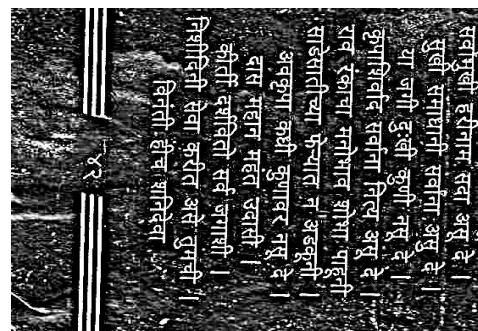 सर्वांमुखी हरीनाम सदा असू दे |
सुखी समाधानी सर्वांना असु दे |
या जगी दुःखी कुणी नसू दे |
कृपाशिर्वाद सर्वांना नित्य असू दे |
राव रंकाचा मनोभाव शोभा पाहूनी
साडेसातीच्या फेऱ्यात न अडकूनी |
अवकृपा कधी कुणावर नसू दे |
दास महान महंत उदासी |
कीर्ती दर्शविती सर्व जगाशी |
निशीदिनी सेवा करीत असे तुमची ||
विनंती हीच शनिदेवा
४२